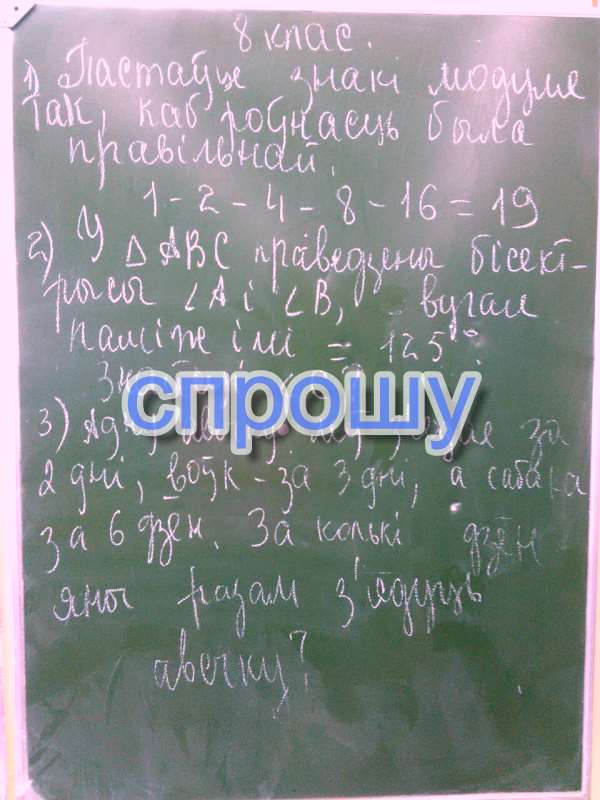 8 клас.
1) Пастаўце знакі модуля
так, каб роўнасць была
правільнай.
1 - 2 - 4 - 8 - 16 = 19
2) У △ABC праведзены бісект-
рысы ∠A і ∠B, вугал
паміж імі = 125°.
спрошу
3) за
2 дні, воўк - за 3 дні, а сабака
за 6 дзён. За колькі дзён
яны разам з'ядуць
авечку?